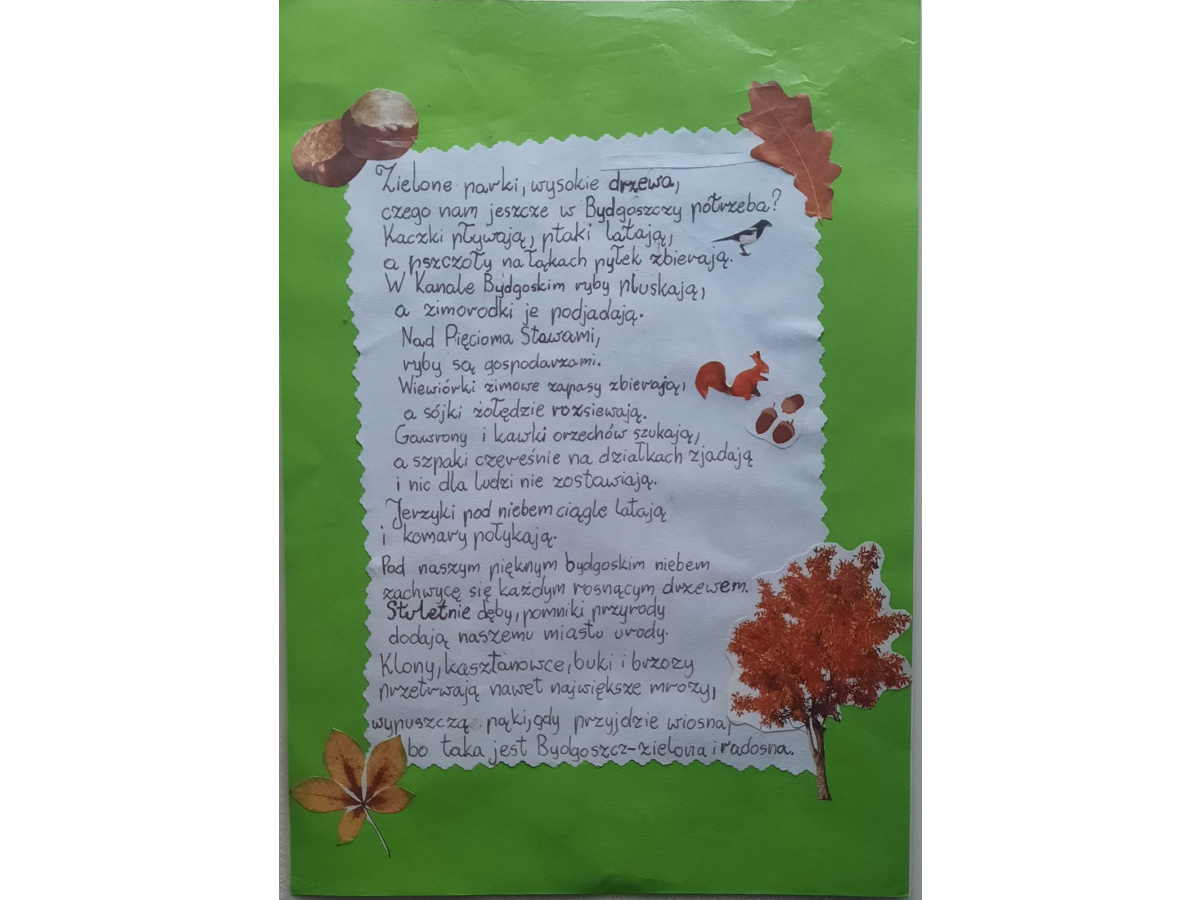 Zielone parki, wysokie drzewa,
czego nam jeszcze w Bydgoszczy potrzeba?
Kaczki pływają, ptaki latają,
a pszczoły na łąkach pyłek zbierają.
W Kanale Bydgoskim ryby pluskają,
a zimorodki je podjadają.
Nad Pięcioma Stawami,
ryby są gospodarzami.
Wiewiórki zimowe zapasy zbierają,
a sójki żołędzie rozsiewają.
Gawrony i kawki orzechów szukają,
a szpaki czereśnie na działkach zjadają
i nic dla ludzi nie zostawiają.
Jerzyki pod niebem ciągle latają
i komary połykają.
Pod naszym pięknym bydgoskim niebem
zachwycę się każdym rosnącym drzewem.
Stuletnie dęby, pomniki przyrody
dodają naszemu miastu urody.
Klony, kasztanowce, buki i brzozy
przetrwają nawet największe mrozy,
wypuszczą pąki, gdy przyjdzie wiosna,
bo taka jest Bydgoszcz-zielona i radosna.